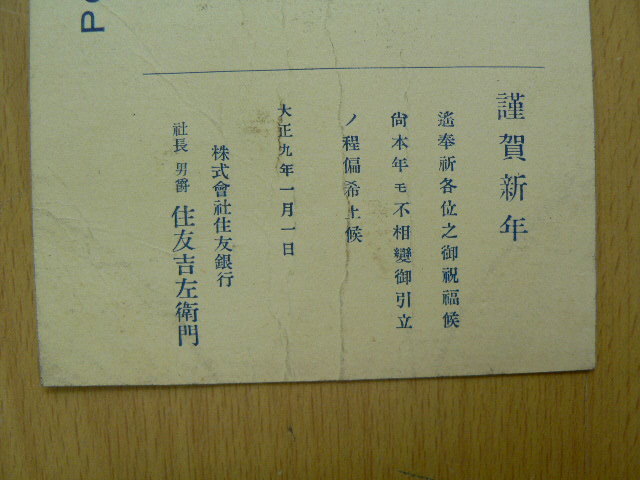 謹賀新年
遙奉祈各位之御祝福候
尙本年モ不相變御引立
ノ程偏希上候
大正九年一月一日
株式會社住友銀行
社長 男爵 住友吉左衛門